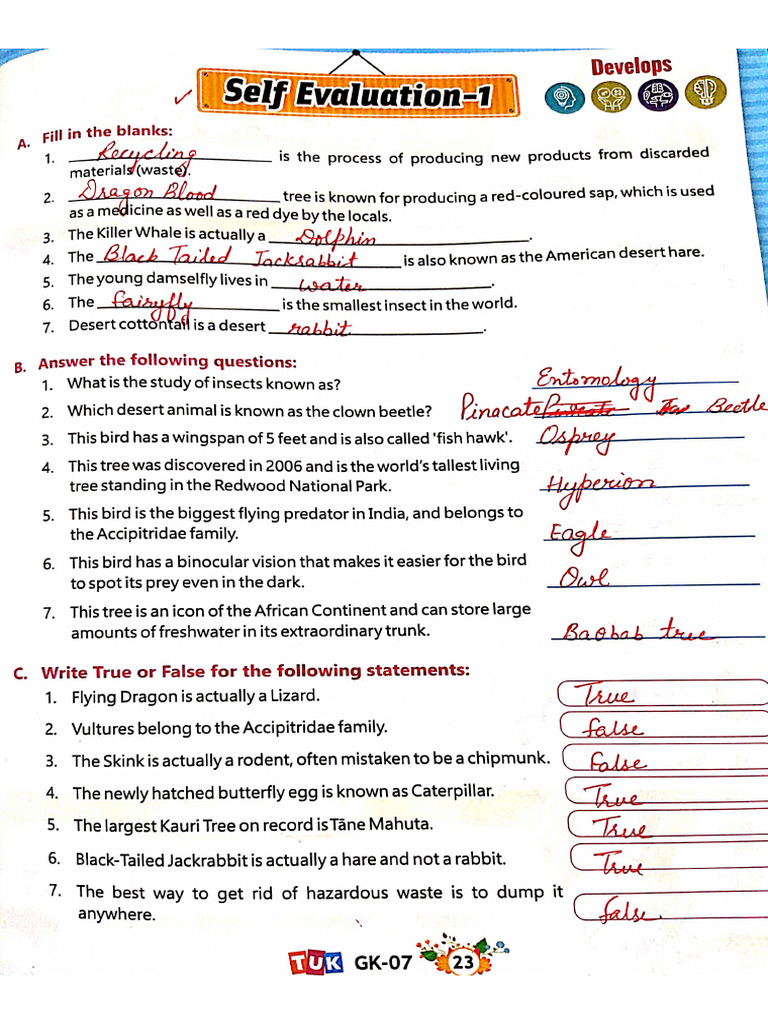 Develops
Self Evaluation-1
A. Fill in the blanks:
1. Recycling is the process of producing new products from discarded
materials (waste).
2. Dragon Blood tree is known for producing a red-coloured sap, which is used
as a medicine as well as a red dye by the locals.
3. The Killer Whale is actually a Dolphin.
4. The Black Tailed Jackrabbit is also known as the American desert hare.
5. The young damselfly lives in water.
6. The fairyfly is the smallest insect in the world.
7. Desert cottontail is a desert rabbit.
B. Answer the following questions:
1. What is the study of insects known as? Entomology
2. Which desert animal is known as the clown beetle? Pinacate Beetle
3. This bird has a wingspan of 5 feet and is also called 'fish hawk'. Osprey
4. This tree was discovered in 2006 and is the world's tallest living
tree standing in the Redwood National Park. Hyperion
5. This bird is the biggest flying predator in India, and belongs to
the Accipitridae family. Eagle
6. This bird has a binocular vision that makes it easier for the bird
to spot its prey even in the dark. Owl
7. This tree is an icon of the African Continent and can store large
amounts of freshwater in its extraordinary trunk. Baobab tree
C. Write True or False for the following statements:
1. Flying Dragon is actually a Lizard. True
2. Vultures belong to the Accipitridae family. False
3. The Skink is actually a rodent, often mistaken to be a chipmunk. False
4. The newly hatched butterfly egg is known as Caterpillar. True
5. The largest Kauri Tree on record is Tāne Mahuta. True
6. Black-Tailed Jackrabbit is actually a hare and not a rabbit. True
7. The best way to get rid of hazardous waste is to dump it
anywhere. False.
TUK GK-07 23